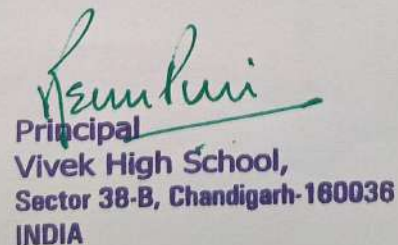 Renu Puri
Principal
Vivek High School,
Sector 38-B, Chandigarh-160036
INDIA